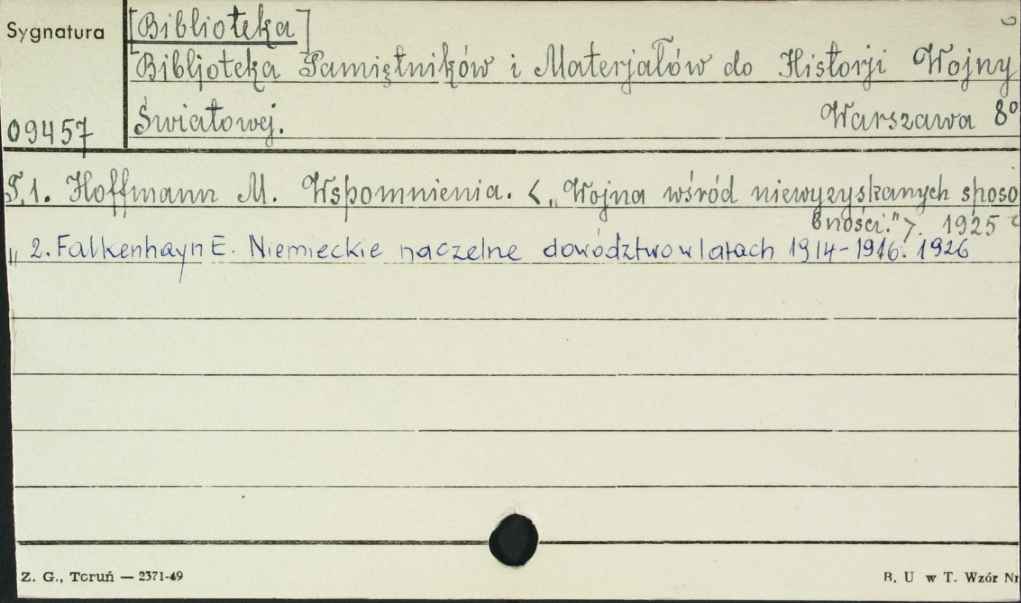 Sygnatura
[Biblioteka]
Bibljoteka Pamiętników i Materjałów do Historji Wojny
Światowej. Warszawa 8°
09457
T.1. Hoffmann M. Wspomnienia. <„Wojna wśród niewyzyskanych sposo
bności.">. 1925
„ 2. Falkenhayn E. Niemieckie naczelne dowództwo w latach 1914-1916. 1926
Z. G., Toruń — 2371-49
B. U w T. Wzór Nr